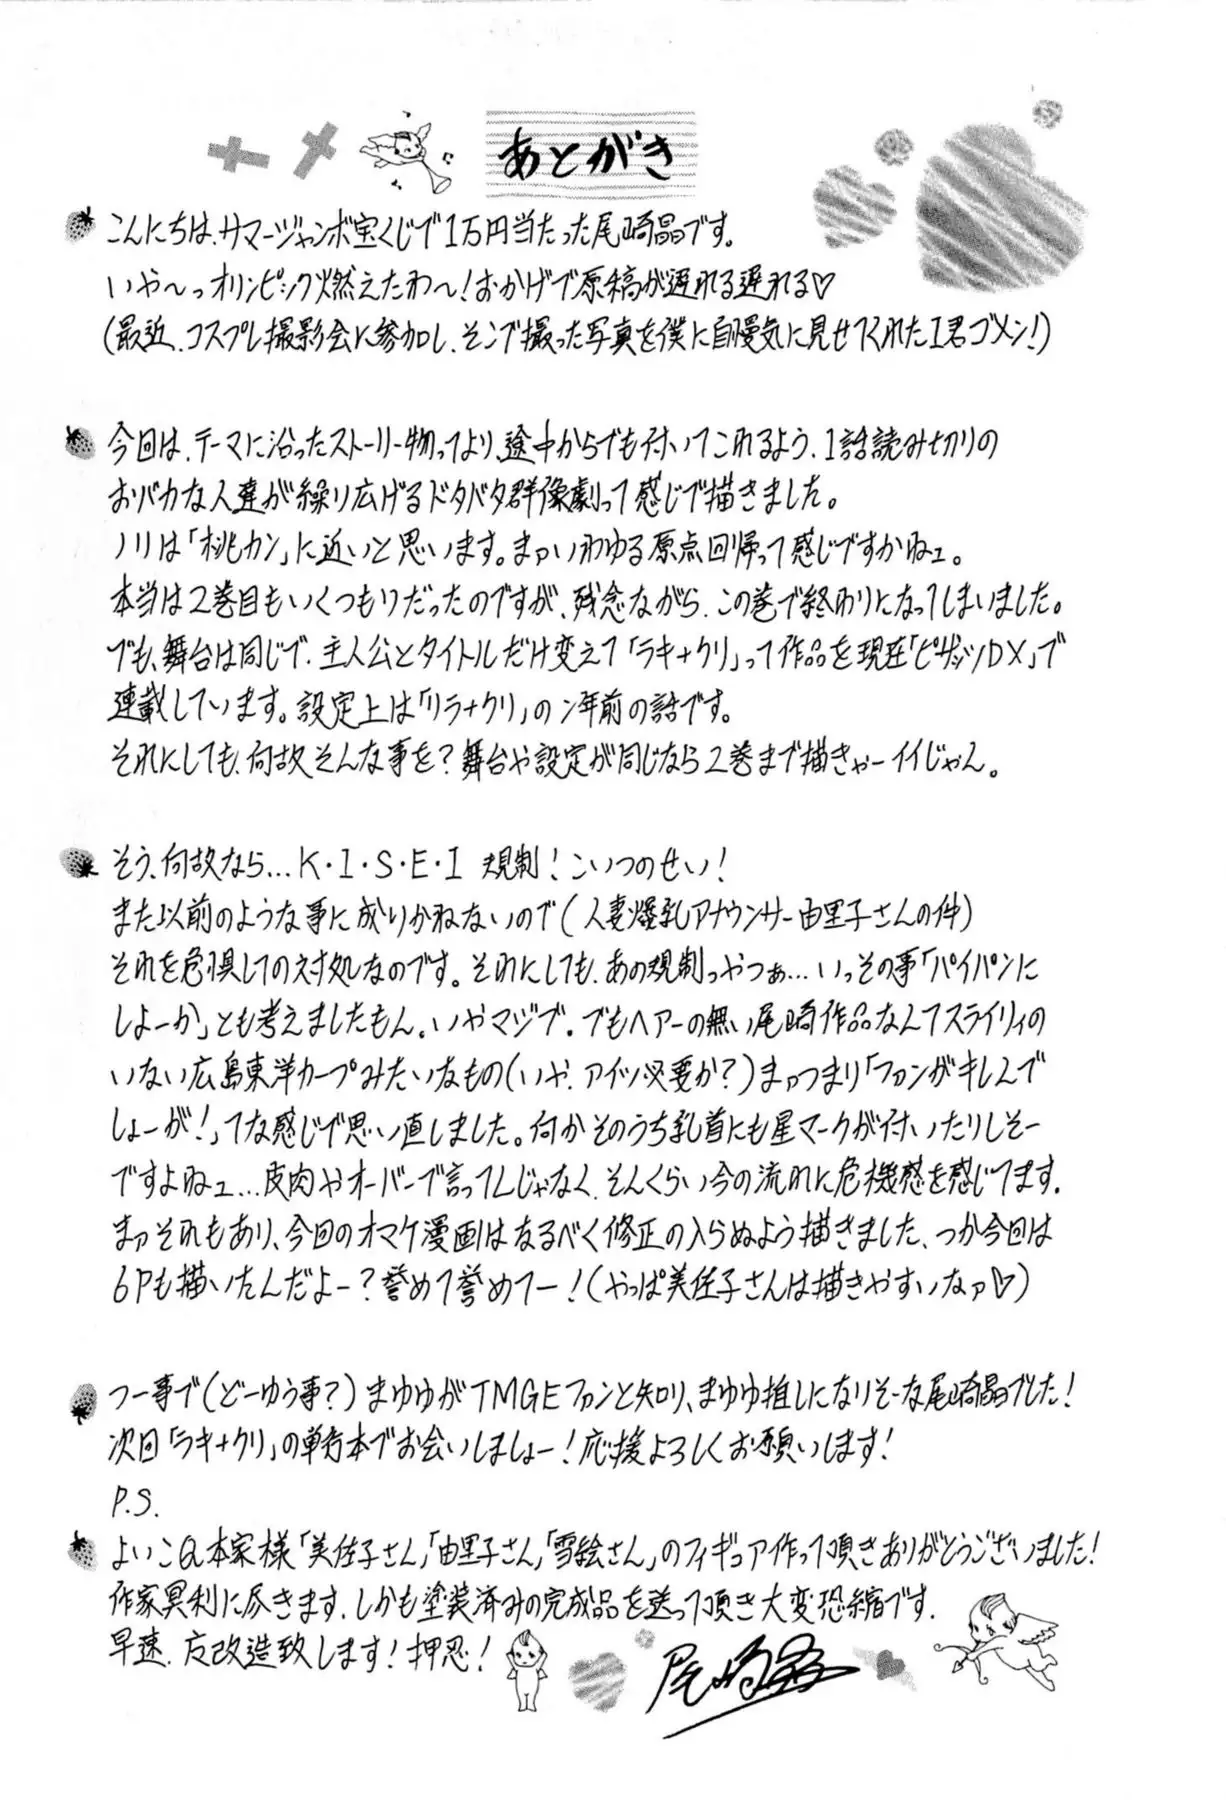 あとがき
こんにちは、サマージャンボ宝くじで1万円当たった尾崎晶です。
いや〜っオリンピック燃えたわ〜!おかげで原稿が遅れる遅れる♡
(最近、コスプレ撮影会に参加し、そこで撮った写真を僕に自慢気に見せてくれたI君ゴメン!)
今回は、テーマに沿ったストーリー物ってより、途中からでも付いてこれるよう、1話読み切りの
おバカな人達が繰り広げるドタバタ群像劇って感じで描きました。
ノリは「桃カン」に近いと思います。まァいわゆる原点回帰って感じですかねェ。
本当は2巻目もいくつもりだったのですが、残念ながら、この巻で終わりになってしまいました。
でも、舞台は同じで、主人公とタイトルだけ変えて「ラキ+クリ」って作品を現在「ピザッツDX」で
連載しています。設定上は「リラ+クリ」の2年前の話です。
それにしても、何故そんな事を?舞台や設定が同じなら2巻まで描きゃーイイじゃん。
そう、何故なら…K・I・S・E・I 規制!こいつのせい!
また以前のような事に成りかねないので(人妻爆乳アナウンサー由里子さんの件)
それを危惧しての対処なのです。それにしても、あの規制っやつぁ…いっその事「パイパンに
しよーか」とも考えましたもん。いやマジで。でもヘアーの無い尾崎作品なんてスライリィの
いない広島東洋カープみたいなもの(いや、アイツ必要か?)まァつまり「ファンがキレんで
しょーが!」てな感じで思い直しました。何かそのうち乳首にも星マークが付いたりしそー
ですよねェ…皮肉やオーバーで言ってんじゃなく、そんくらい今の流れに危機感を感じてます。
まァそれもあり、今回のオマケ漫画はなるべく修正の入らぬよう描きました、つか今回は
6Pも描いたんだよー?誉めて誉めてー!(やっぱ美佐子さんは描きやすいなァ♡)
つー事で(どーゆう事?)まゆゆがTMGEファンと知り、まゆゆ推しになりそーな尾崎晶でした!
次回「ラキ+クリ」の単行本でお会いしましょー!応援よろしくお願いします!
P.S.
よいこ@本家様「美佐子さん」「由里子さん」「雪絵さん」のフィギュア作って頂きありがとうございました!
作家冥利に尽きます、しかも塗装済みの完成品を送って頂き大変恐縮です。
早速、左改造致します!押忍!
尾崎晶